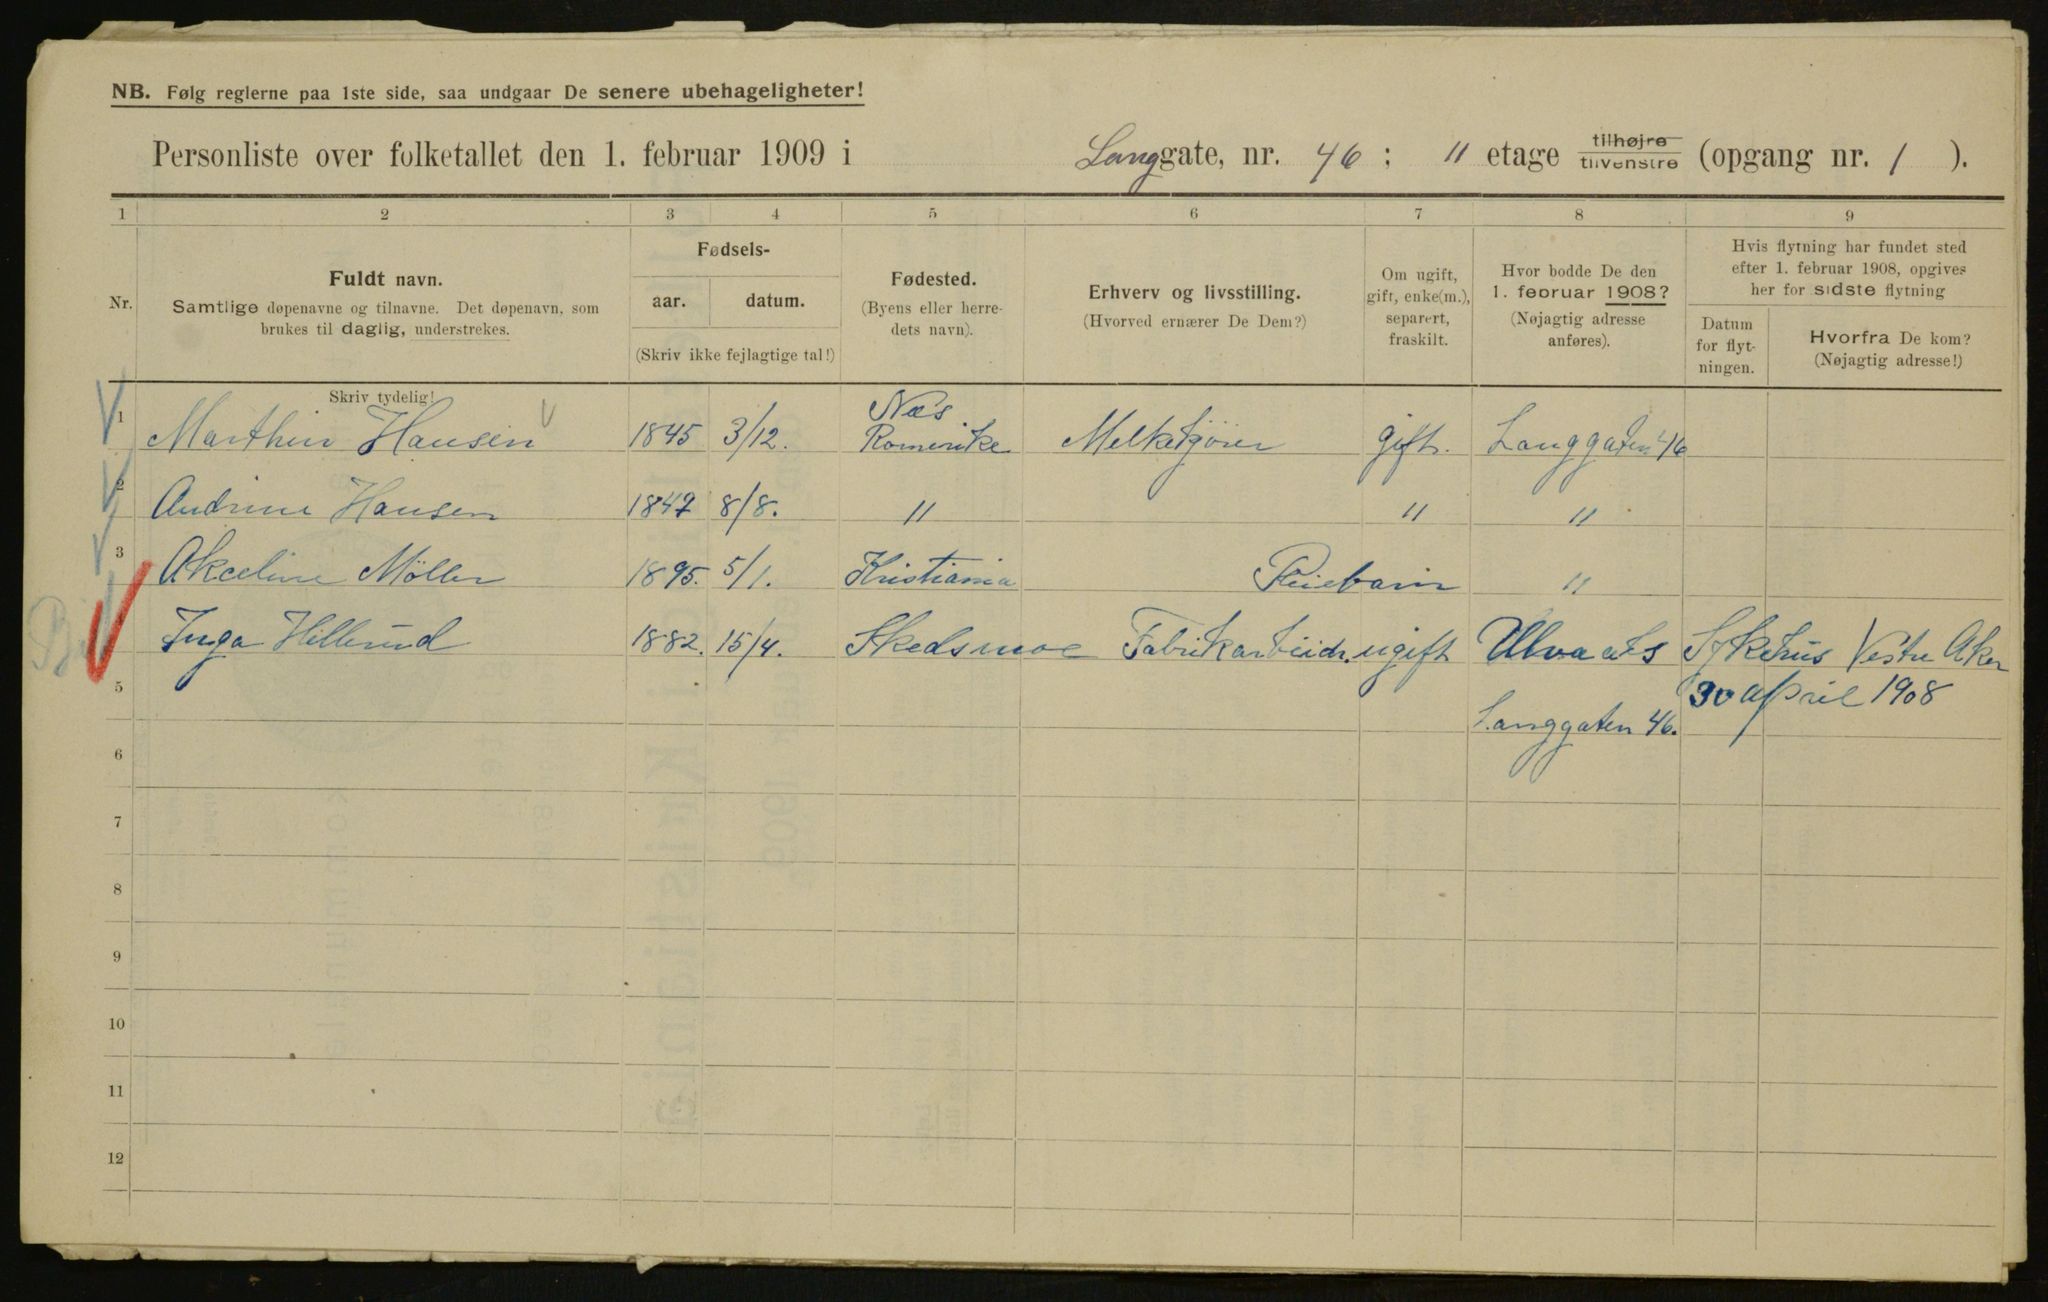 NB. Følg reglerne paa 1ste side, saa undgaar De senere ubehageligheter!
Personliste over folketallet den 1. februar 1909 i Langgate, nr. 46 ; 11 etage tilhøjre tilvenstre (opgang nr. 1 ).
1 2 3 4 5 6 7 8 9
Nr.
Fuldt navn.
Samtlige døpenavne og tilnavne. Det døpenavn, som
brukes til daglig, understrekes.
Skriv tydelig!
Fødsels-
aar. datum.
(Skriv ikke fejlagtige tal!)
Fødested.
(Byens eller herre-
dets navn).
Erhverv og livsstilling.
(Hvorved ernærer De Dem?)
Om ugift,
gift, enke(m.),
separert,
fraskilt.
Hvor bodde De den
1. februar 1908?
(Nøjagtig adresse
anføres).
Hvis flytning har fundet sted
efter 1. februar 1908, opgives
her for sidste flytning
Datum
for flyt-
ningen.
Hvorfra De kom?
(Nøjagtig adresse!)
1 Marthin Hansen 1845 3/12. Næs Romerike Melkekjører gift. Langgaten 46
2 Andrine Hansen 1847 8/8. " " "
3 Akceline Möller 1895. 5/1. Kristiania Pleiebarn "
Inga Hillerud 1882. 15/4. Skedsmoe Fabrikarbeidr. ugift Ulvaaets Sykehus Vestre Aker
5 30 april 1908
Langgaten 46.
6
7
8
9
10
11
12